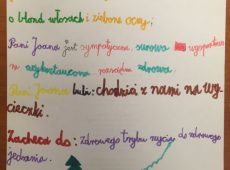 o blond włosach i zielone oczy.
Pani Joanna jest sympatyczna surowa wysportowana
wykształcona
Pani Joanna lubi: chodzić z nami na wy
cieczki.
Zachęca do: zdrowego trybu do zdrowego
jedzenia.